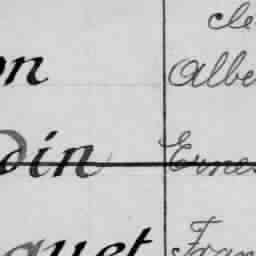 cle
on Albe
din Ernes
quet Fran